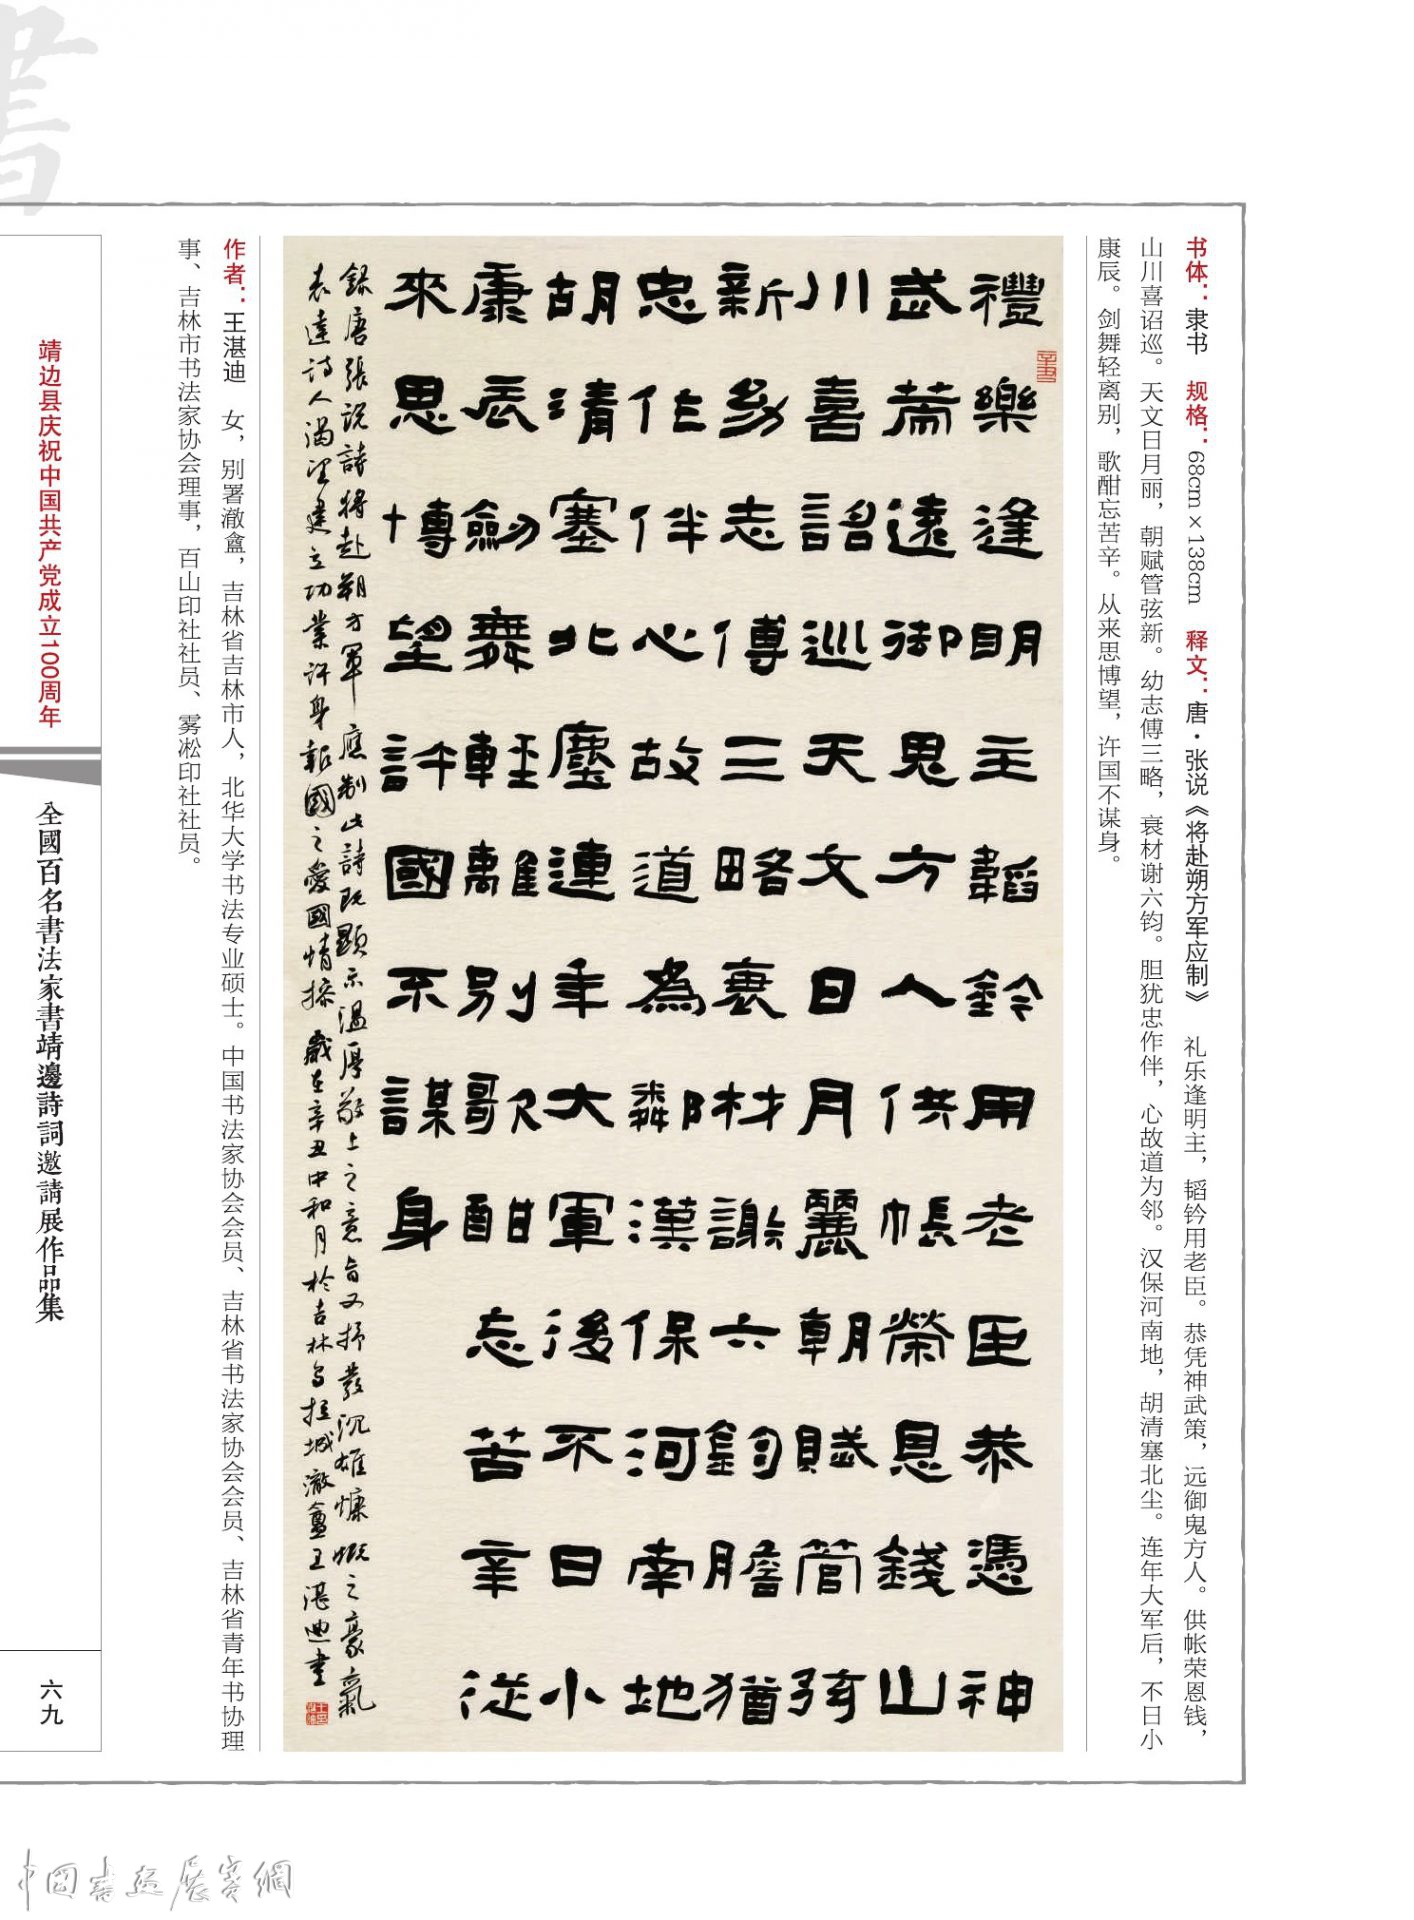 书体：隶书 规格：68cm×138cm 释文：唐·张说《将赴朔方军应制》 礼乐逢明主，韬钤用老臣。恭凭神武策，远御鬼方人。供帐荣恩钱，
山川喜诏巡。天文日月丽，朝赋管弦新。幼志傅三略，衰材谢六钧。胆犹忠作伴，心故道为邻。汉保河南地，胡清塞北尘。连年大军后，不日小
康辰。剑舞轻离别，歌酣忘苦辛。从来思博望，许国不谋身。
禮樂逢明主韜鈐用老臣恭憑神
武策遠御鬼方人供帳榮恩錢山
川喜詔巡天文日月麗朝賦管弦
新幼志傅三略衰材謝六鈞膽猶
忠作伴心故道為鄰漢保河南地
胡清塞北塵連年大軍後不日小
康辰劍舞輕離別歌酣忘苦辛從
來思博望許國不謀身
錄唐張說詩將赴朔方軍應制此詩既顯示溫厚敬上之意旨又抒發沉雄慷慨之豪氣
表達詩人渴望建立功業許身報國之愛國情操歲在辛丑中和月於吉林烏拉城澈盦王湛迪書
作者：王湛迪 女，别署澈盦，吉林省吉林市人，北华大学书法专业硕士。中国书法家协会会员、吉林省书法家协会会员、吉林省青年书协理
事、吉林市书法家协会理事，百山印社社员、雾凇印社社员。
靖边县庆祝中国共产党成立100周年
全國百名書法家書靖邊詩詞邀請展作品集
六九
書
中國書畫展賽網